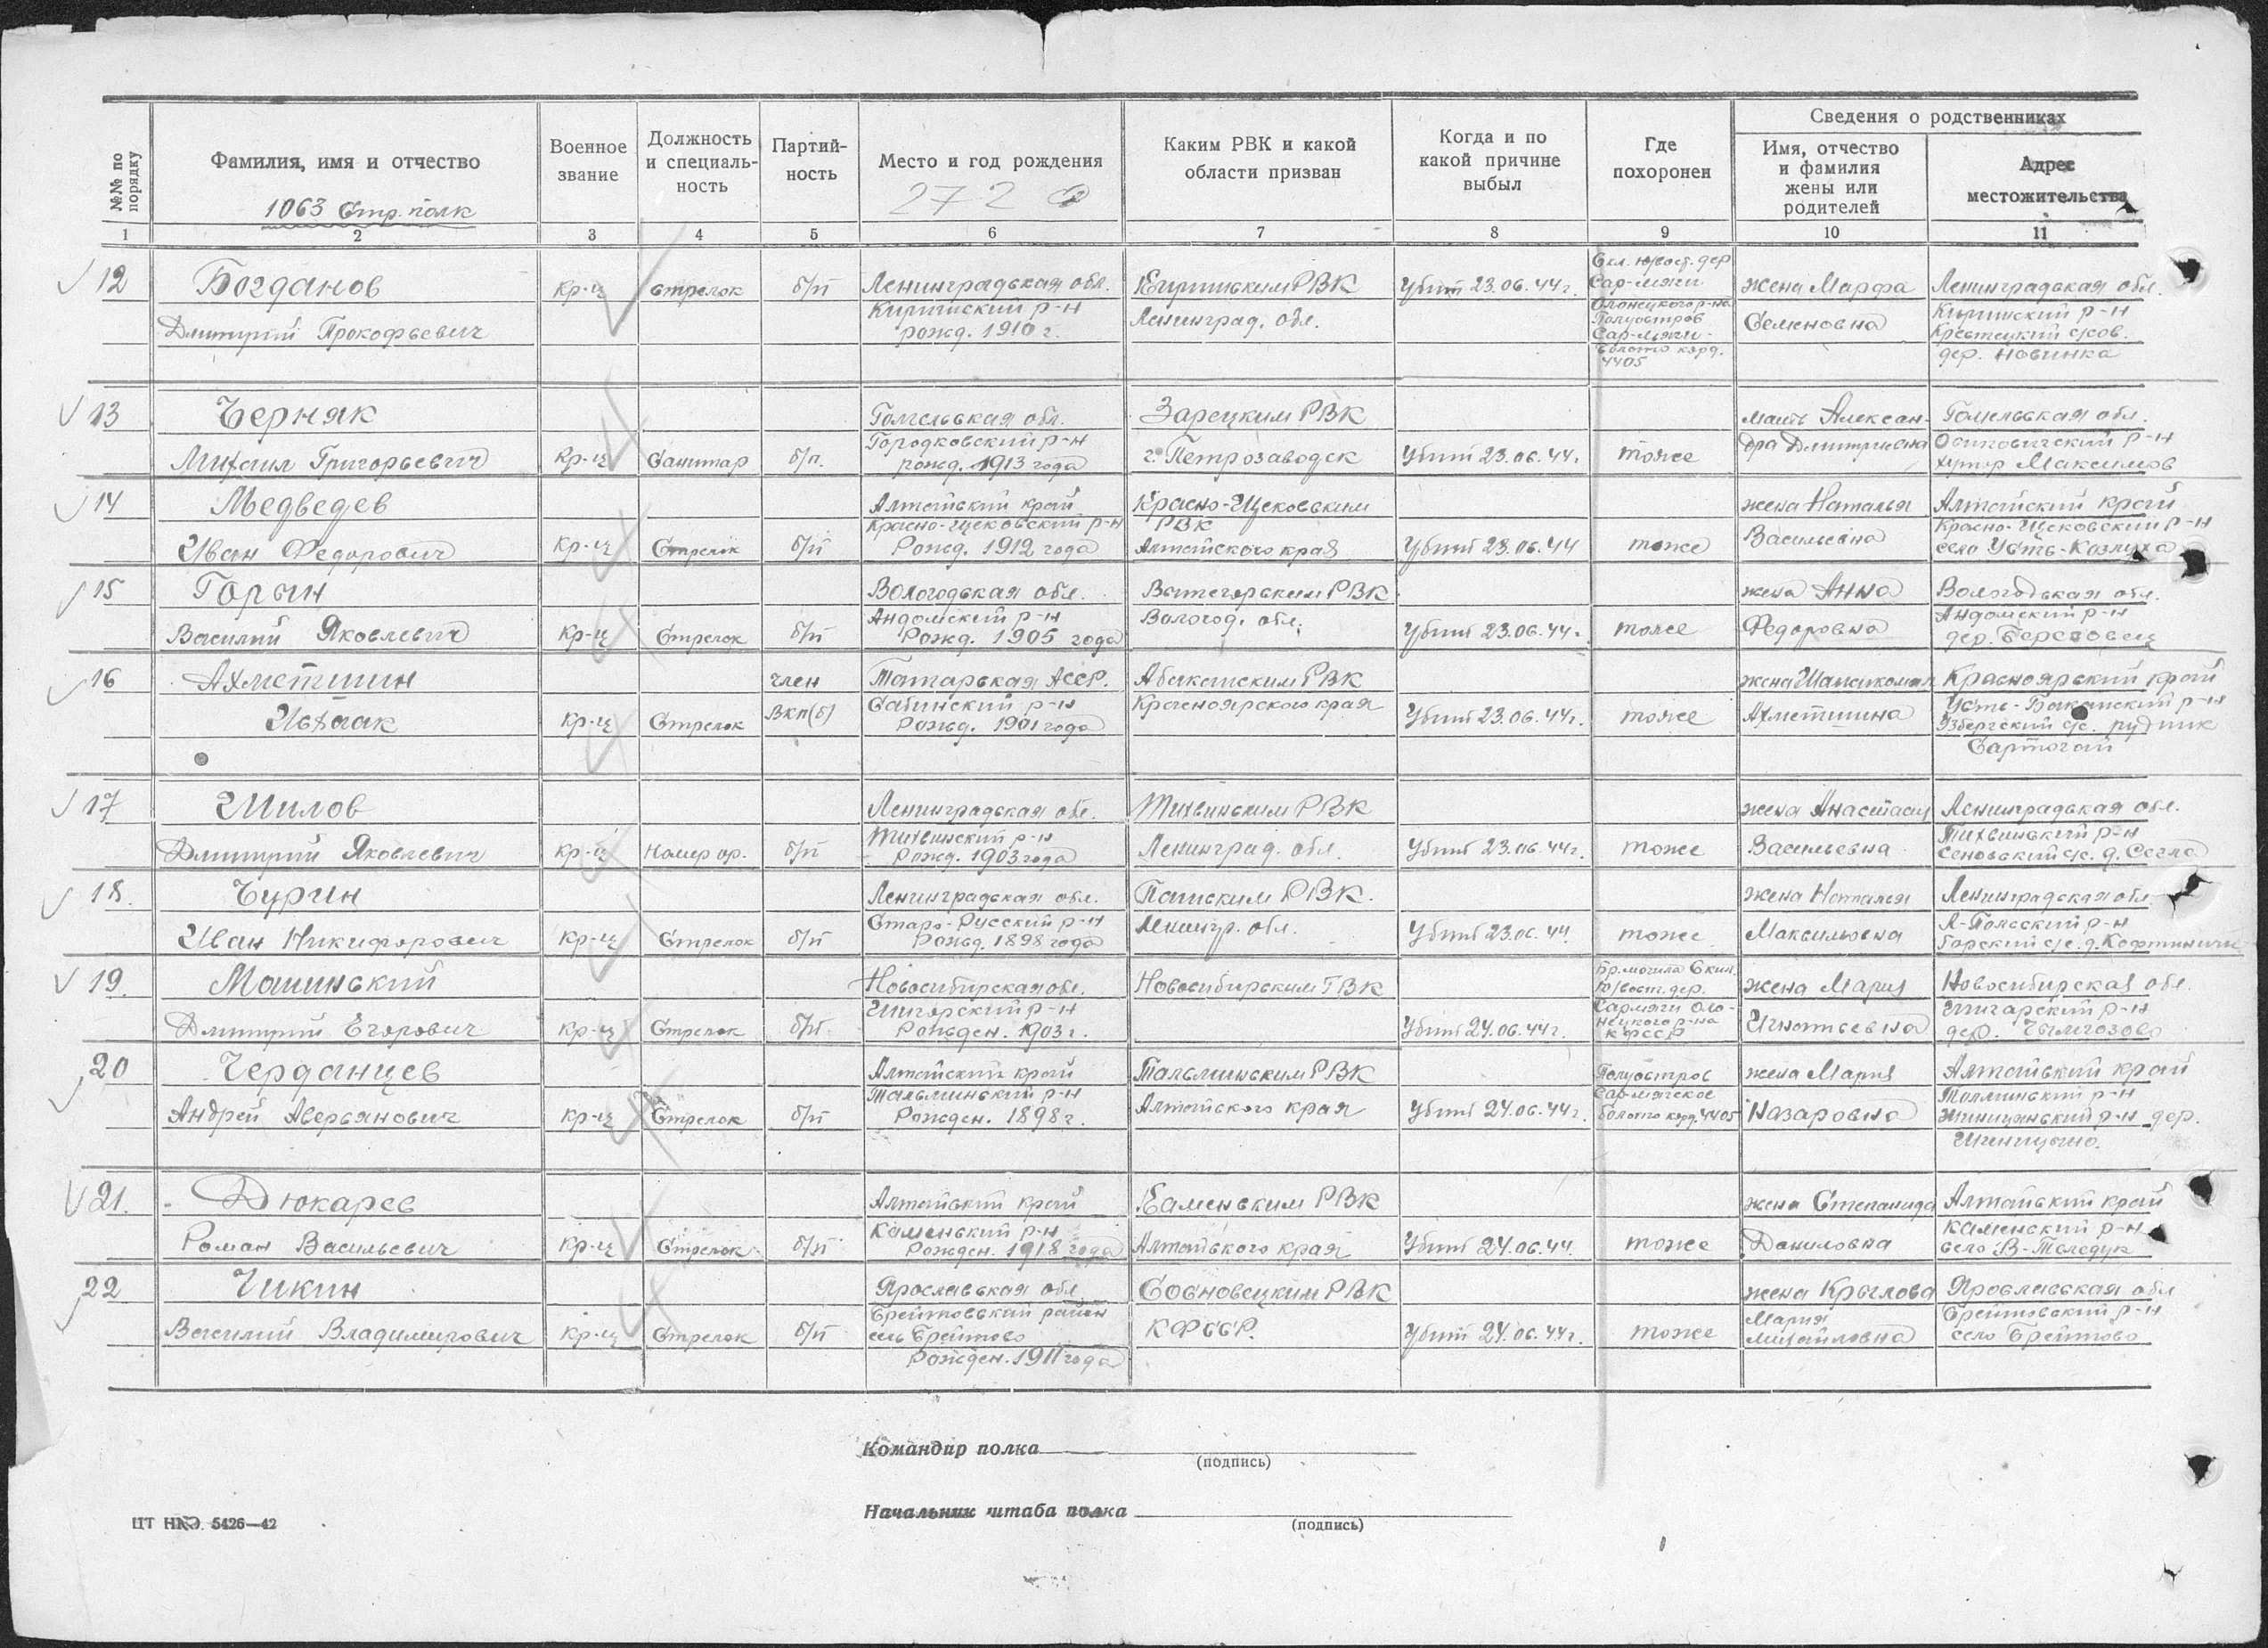 №№ по порядку
Фамилия, имя и отчество
1063 Стр. полк
Военное звание
Должность и специальность
Партийность
Место и год рождения
272
Каким РВК и какой области призван
Когда и по какой причине выбыл
Где похоронен
Сведения о родственниках
Имя, отчество и фамилия жены или родителей
Адрес местожительства
1 2 3 4 5 6 7 8 9 10 11
12 Богданов
Дмитрий Прокофьевич
кр-ц стрелок б/п
Ленинградская обл.
Киришский р-н
рожд. 1910 г.
Киришским РВК
Ленинград. обл.
Убит 23.06.44 г.
Сар-мяги
Олонецкого р-на
Полуостров
Сар-мяги-
болото корд.
4405
жена Марфа
Семеновна
Ленинградская обл.
Киришский р-н
дер. Новинка
13 Черняк
Михаил Григорьевич
Кр-ц Санитар б/п.
Гомельская обл.
Городковский р-н
рожд. 1913 года
Зарецким РВК
г. Петрозаводск
Убит 23.06.44.
тоже
мать Алексан-
дра Дмитриевна
Гомельская обл.
хутор Максимов
14 Медведев
Иван Федорович
Кр-ц Стрелок б/п
Алтайский край
Красно-Щековский р-н
Рожд. 1912 года
Красно-Щековским
РВК
Алтайского края
Убит 23.06.44
тоже
жена Наталья
Васильевна
Алтайский край
Красно-Щековский р-н
село Усть-Козлуха
15 Горын
Василий Яковлевич
Кр-ц Стрелок б/п
Вологодская обл.
Андомский р-н
Рожд. 1905 года
Вытегорским РВК
Вологод. обл.
Убит 23.06.44.
тоже
жена Анна
Федоровна
Вологодская обл.
Андомский р-н
дер. Березовец
16 Ахметшин
Исхак
Кр-ц Стрелок
член
ВКП(б)
Татарская АССР.
Сабинский р-н
Рожд. 1901 года
Абаканским РВК
Красноярского края
Убит 23.06.44 г.
тоже
Ахметшина
Красноярский край
Усть-Баканский р-н
рудник
17 Шилов
Дмитрий Яковлевич
кр-ц Номер ор. б/п
Ленинградская обл.
Тихвинский р-н
Рожд. 1903 года
Тихвинским РВК
Ленинград. обл.
Убит 23.06.44 г.
тоже
жена Анастаси
Васильевна
Ленинградская обл.
Тихвинский р-н
18. Чурин
Иван Никифорович
кр-ц Стрелок б/п
Ленинградская обл.
Старо-Русский р-н
Рожд. 1898 года
Пашским РВК.
Ленингр. обл.
Убит 23.06.44.
тоже
жена Наталья
Максимовна
Ленинградская обл
19. Машинский
Дмитрий Егорович
кр-ц Стрелок б/п.
Новосибирская обл.
Рожден. 1903 г.
Новосибирским ГВК
Убит 24.06.44 г.
Бр. могила
Ю/вост. дер.
Сармяги Оло-
нецкого р-на
КФССР
жена Мария
Игнатьевна
Новосибирская обл.
20 Черданцев
Андрей Аверьянович
кр-ц Стрелок б/п
Алтайский край
Тальменский р-н
Рожден. 1898 г.
Тальменским РВК
Алтайского края
Убит 24.06.44 г.
Полуостров
Сар-мягское
болото корд. 4405
жена Мария
Назаровна
Алтайский край
21. Дюкарев
Роман Васильевич
кр-ц Стрелок б/п
Алтайский край
Каменский р-н
Рожден. 1918 года
Каменским РВК
Алтайского края
Убит 24.06.44.
тоже
жена Степанида
Даниловна
Алтайский край
Каменский р-н
22 Чикин
Василий Владимирович
кр-ц Стрелок б/п
Ярославская обл
Брейтовский район
село Брейтово
Рожден. 1911 года
Сосновецким РВК
КФССР.
Убит 24.06.44 г.
тоже
жена Крылова
Мария
Михайловна
Ярославская обл
Брейтовский р-н
село Брейтово
Командир полка
(подпись)
Начальник штаба полка
(подпись)
ЦТ НКО. 5426—42